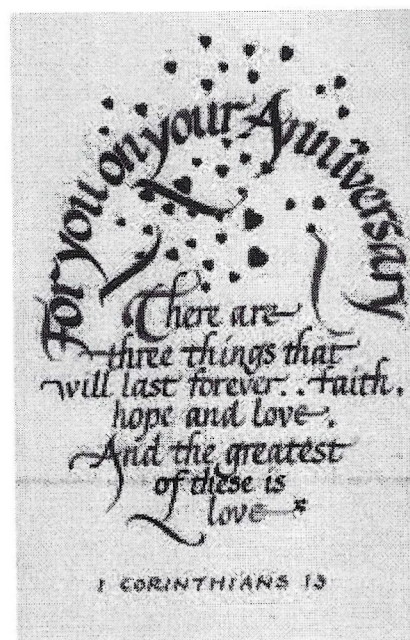 For you on your Anniversary
There are
three things that
will last forever.. faith,
hope and love.
And the greatest
of these is
love
1 CORINTHIANS 13